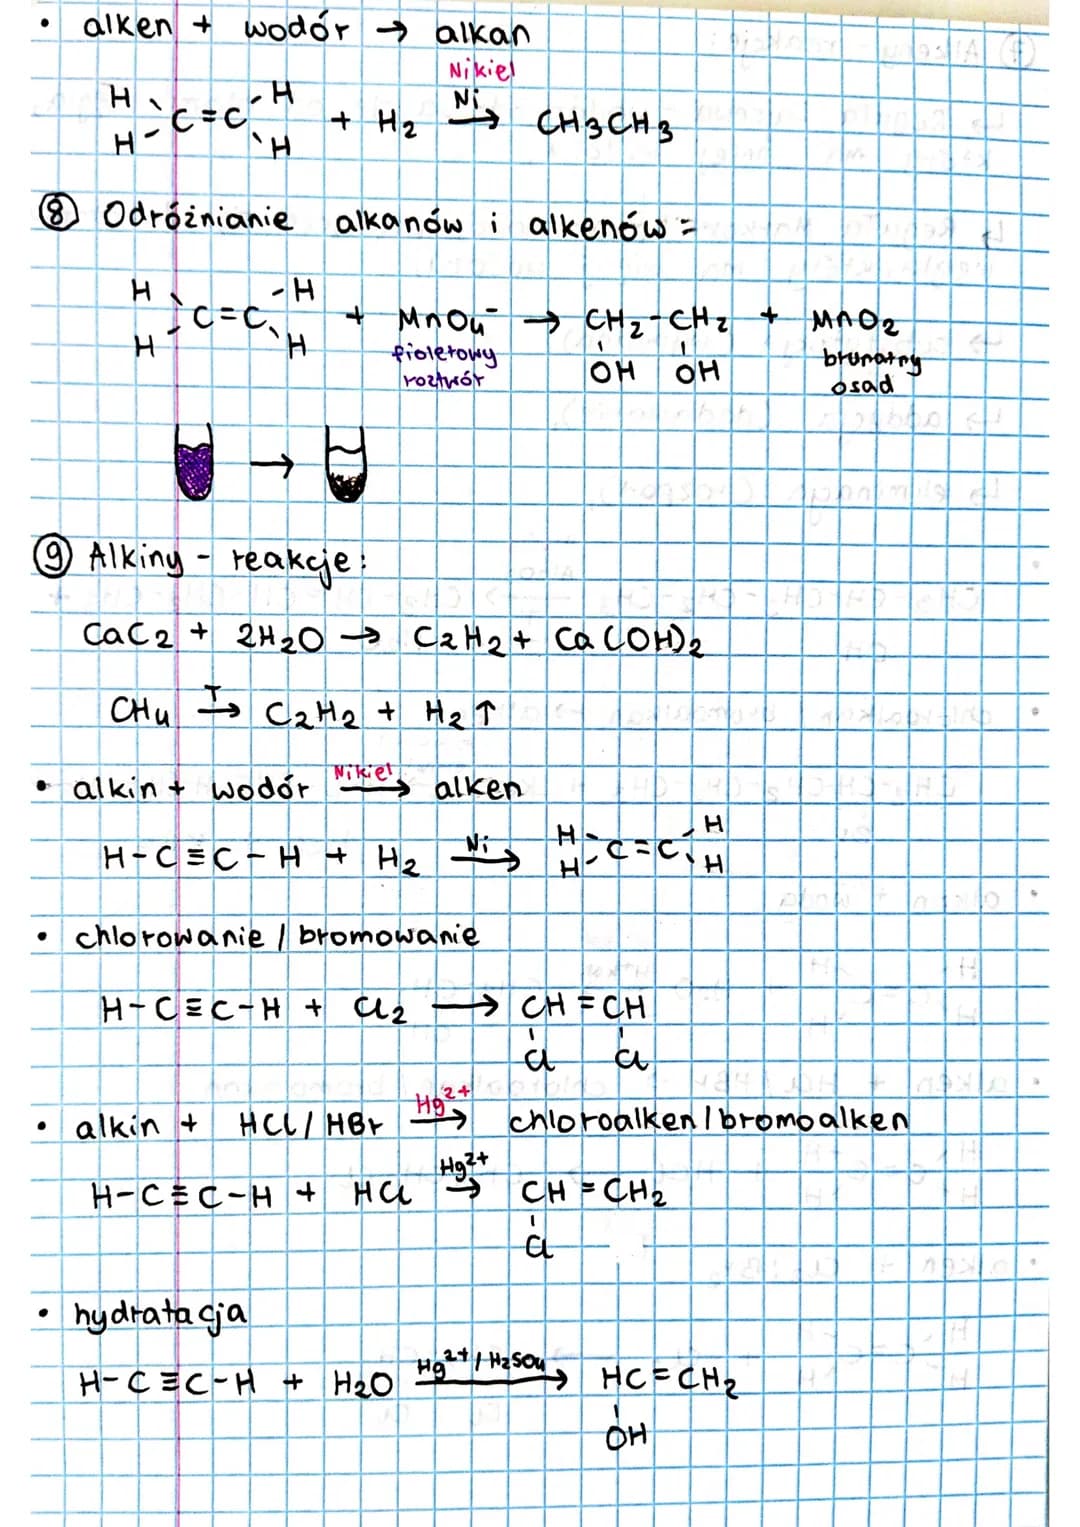 • alken + wodór → alkan
Nikiel
H H
C=C + H2 Ni→ CH3CH3
H H
⑧ Odróżnianie alkanów i alkenów =
H H
C=C + MnO4⁻ → CH2-CH2 + MnO2
H H fioletowy roztwór OH OH brunatny osad
→
⑨ Alkiny - reakcje:
CaC2 + 2H2O → C2H2 + Ca(OH)2
CH4 T→ C2H2 + H2↑
• alkin + wodór Nikiel→ alken
H-C≡C-H + H2 Ni→ H H C=C H H
• chlorowanie / bromowanie
H-C≡C-H + Cl2 → CH=CH
Cl Cl
• alkin + HCl/HBr Hg²⁺→ chloroalken/bromoalken
H-C≡C-H + HCl Hg²⁺→ CH=CH2
Cl
• hydratacja
H-C≡C-H + H2O Hg²⁺/H2SO4→ HC=CH2
OH